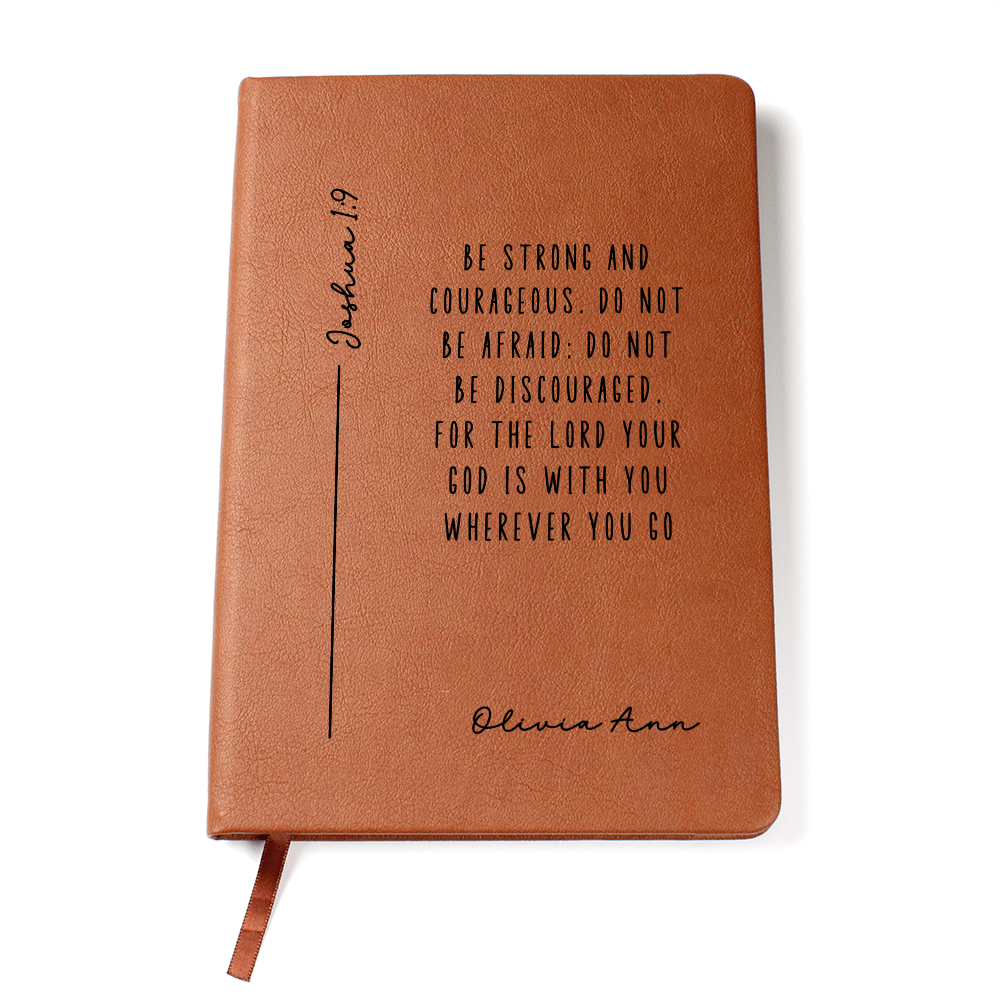 Joshua 1:9
BE STRONG AND
COURAGEOUS. DO NOT
BE AFRAID; DO NOT
BE DISCOURAGED,
FOR THE LORD YOUR
GOD IS WITH YOU
WHEREVER YOU GO
Olivia Ann